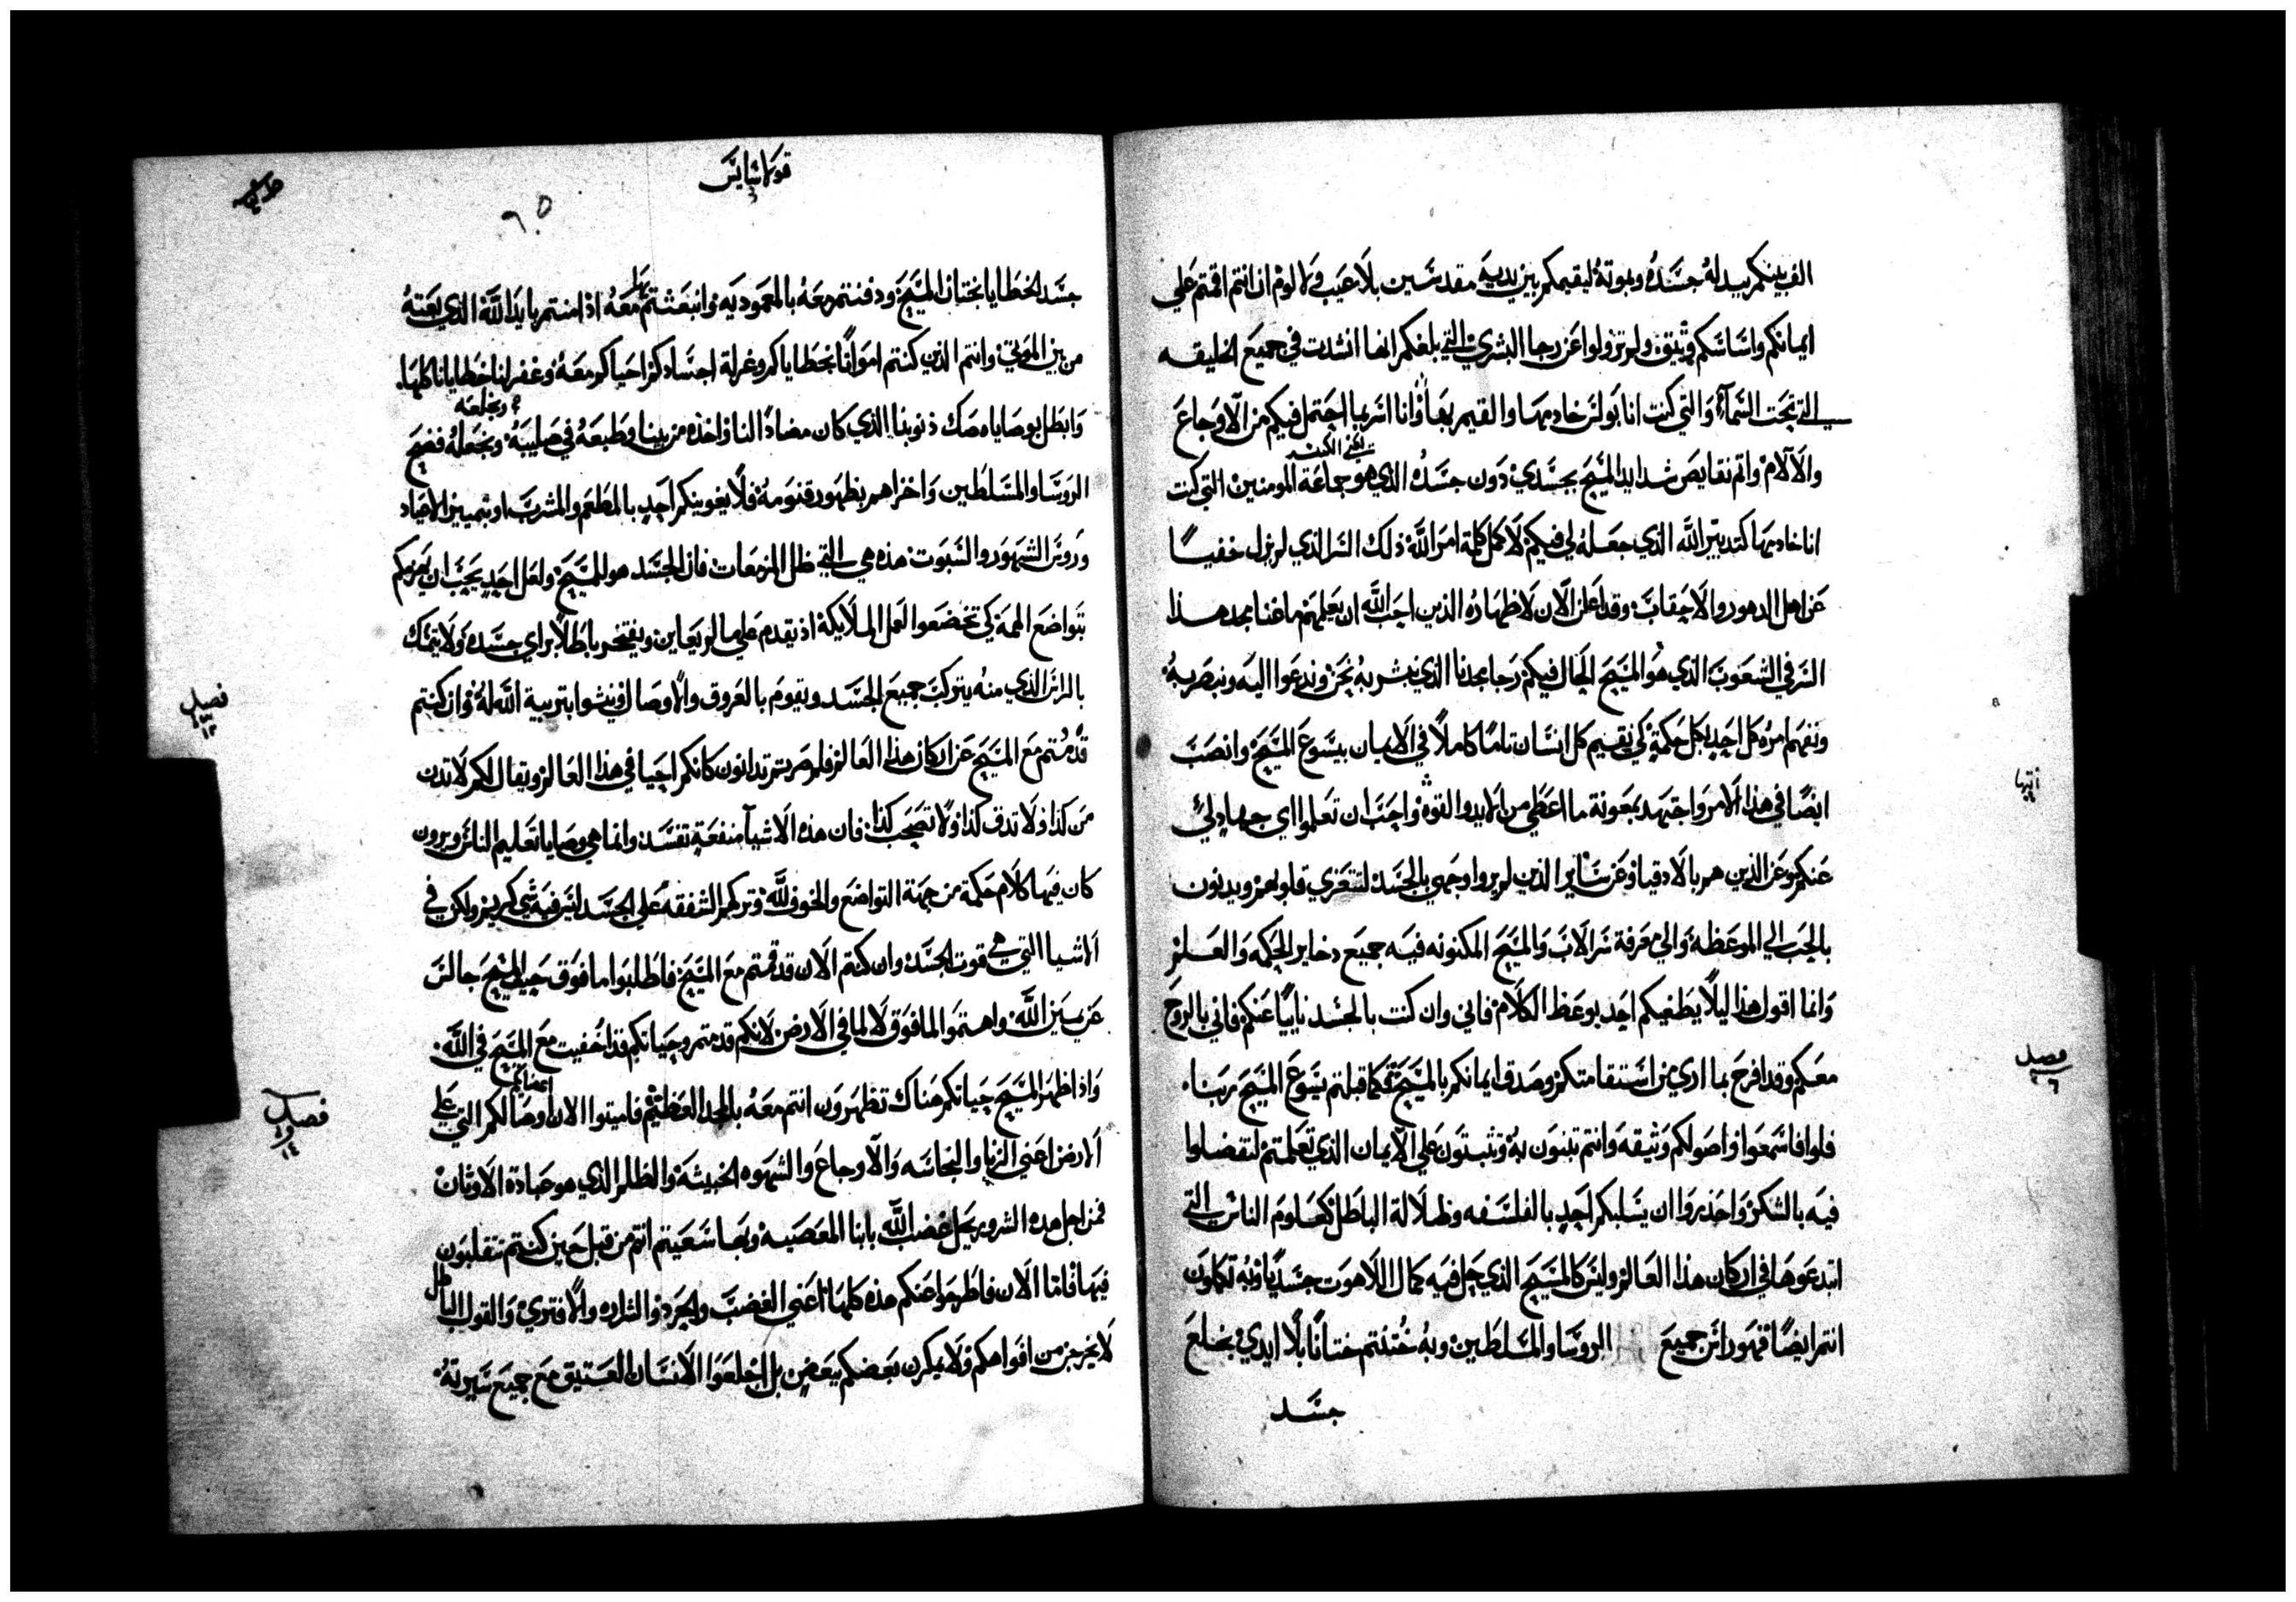 الف بينكم ببدله جسده وبموته ليقيمكم بين يديه مقدسين بلا عيب ولا لوم ان انتم اقمتم علي
ايمانكم واساسكم وثيق ولم تزولوا عن رجا البشري التي بلغكم انها انشدت في جميع الخليقه
التي تحت السمآء والتي كنت انا بولس خادمها والقيم بها وانا اسر بما احتمل فيكم من الاوجاع
يعني الكنيسه
والالام واتم نقايص شدايد المسيح بجسدي دون جسده الذي هو جماعة المومنين التي كنت
انا خادمها كتدبير الله الذي جعله لي فيكم لاكمل كلمة امر الله ذلك السر الذي لم يزل خفيا
عن اهل الدهور والاحقاب وقد اعلن الان لاظهاره الذين احب الله ان يعلمهم ما غنا مجد هذا
السر في الشعوب الذي هو المسيح الحال فيكم رجا مجدنا الذي نبشر به نحن وندعوا اليه ونبصر به
ونفهم امره كل احد بكل حكمة كي نقيم كل انسان تاما كاملا في الايمان بيسوع المسيح وانصب
ايضا في هذا الامر واجتهد بمعونة ما اعطي من الايد والقوة واحب ان تعلموا اي جهاد لي
عنكم وعن الذين هم بالادقيا وعن ساير الذين لم يروا وجهي بالجسد لتتعزي قلوبهم ويدنون
بالحب الي الموعظة والي معرفة سر الاب والمسيح المكنونه فيه جميع دخاير الحكمه والعلم
وانما اقول هذا ليلا يطغيكم احد بوعظ الكلام فاني وان كنت بالجسد نايبا عنكم فاني بالروح
معكم وقد افرح بما اري من استقامتكم وصدق ايمانكم بالمسيح فكما قبلتم يسوع المسيح ربنا
فصل
فاسمعوا واصولكم وثيقه وانتم تبنون به وتثبتون علي الايمان الذي تعلمتم لتفضلوا
فيه بالشكر واحذروا ان يسلبكم احد بالفلسفه وظلالة الباطل كعلوم الناس التي
ابتدعوها في اركان هذا العالم وليس كالمسيح الذي حل فيه كمال اللاهوت جسديا وبه تكملون
انتم ايضا فهو راس جميع الروسا والمسلطين وبه ختنتم ختانا بلا ايدي بخلع
جسد
قولاسايس
٦٥
جسد الخطايا بختان المسيح ودفنتم معه بالمعموديه وانبعثتم معه اذ امنتم بايد الله الذي بعثه
من بين الموتي وانتم الذين كنتم امواتا بخطاياكم وغرلة اجسادكم احياكم معه وغفر لنا خطايانا كلها
وبخلعه
وابطل بوصاياه صك ذنوبنا الذي كان مضادا لنا واخذه من بيننا وطبعه في صليبه وبجعله فضح
الروسا والمسلطين واخزاهم بظهور قنومه فلا يغوينكم احد بالمطعم والمشرب او بتمييز الاعياد
وروس الشهور والسبوت هذه هي التي ظل المزمعات فان الجسد هو المسيح ولعل احد يحب ان يهزمكم
بتواضع الهمة كي تخضعوا لعمل الملايكة اذ يقدم علي ما لم يعاين ويفتخر باطلا براي جسده ولا يتمسك
بالراس الذي منه يتركب جميع الجسد ويقوم بالعروق والاوصال وينشوا بتربية الله له وان كنتم
فصل ١٣
قد متم مع المسيح عن اركان هذا العالم فلم صرتم تدانون كانكم احيا في هذا العالم ويقال لكم لا تدن
من كذا ولا تدق كذا ولا تصحب كذا فان هذه الاشيآ منفعة تفسد وانما هي وصايا تعليم الناس ويرون
كان فيها كلام حكمة من جهة التواضع والخوف لله وتركهم الشفقه علي الجسد ليس فيه شي كريم ولكن في
الاشيا التي هي قوت الجسد وان كنتم الان قد قمتم مع المسيح فاطلبوا ما فوق حيث المسيح جالس
عن يمين الله واهتموا لما فوق لا لما في الارض لانكم قد متم وحياتكم قد اخفيت مع المسيح في الله
واذا ظهر المسيح حياتكم هناك تظهرون انتم معه بالمجد العظيم فاميتوا الان اوصالكم التي علي
فصل ١٤
اعضاكم
الارض اعني الزنا والنجاسه والاوجاع والشهوه الخبيثة والظلم الذي هو عبادة الاوثان
فمن اجل هذه الشرور يحل غضب الله بابنا المعصيه وبها سعيتم انتم من قبل حين كنتم تتقلبون
فيها فاما الان فاطرحوا عنكم هذه كلها اعني الغضب والحرد والشراره والافتري والقول الباطل
لا يخرجن من افواهكم ولا يمكرن بعضكم ببعض بل اخلعوا الانسان العتيق مع جميع سيرته